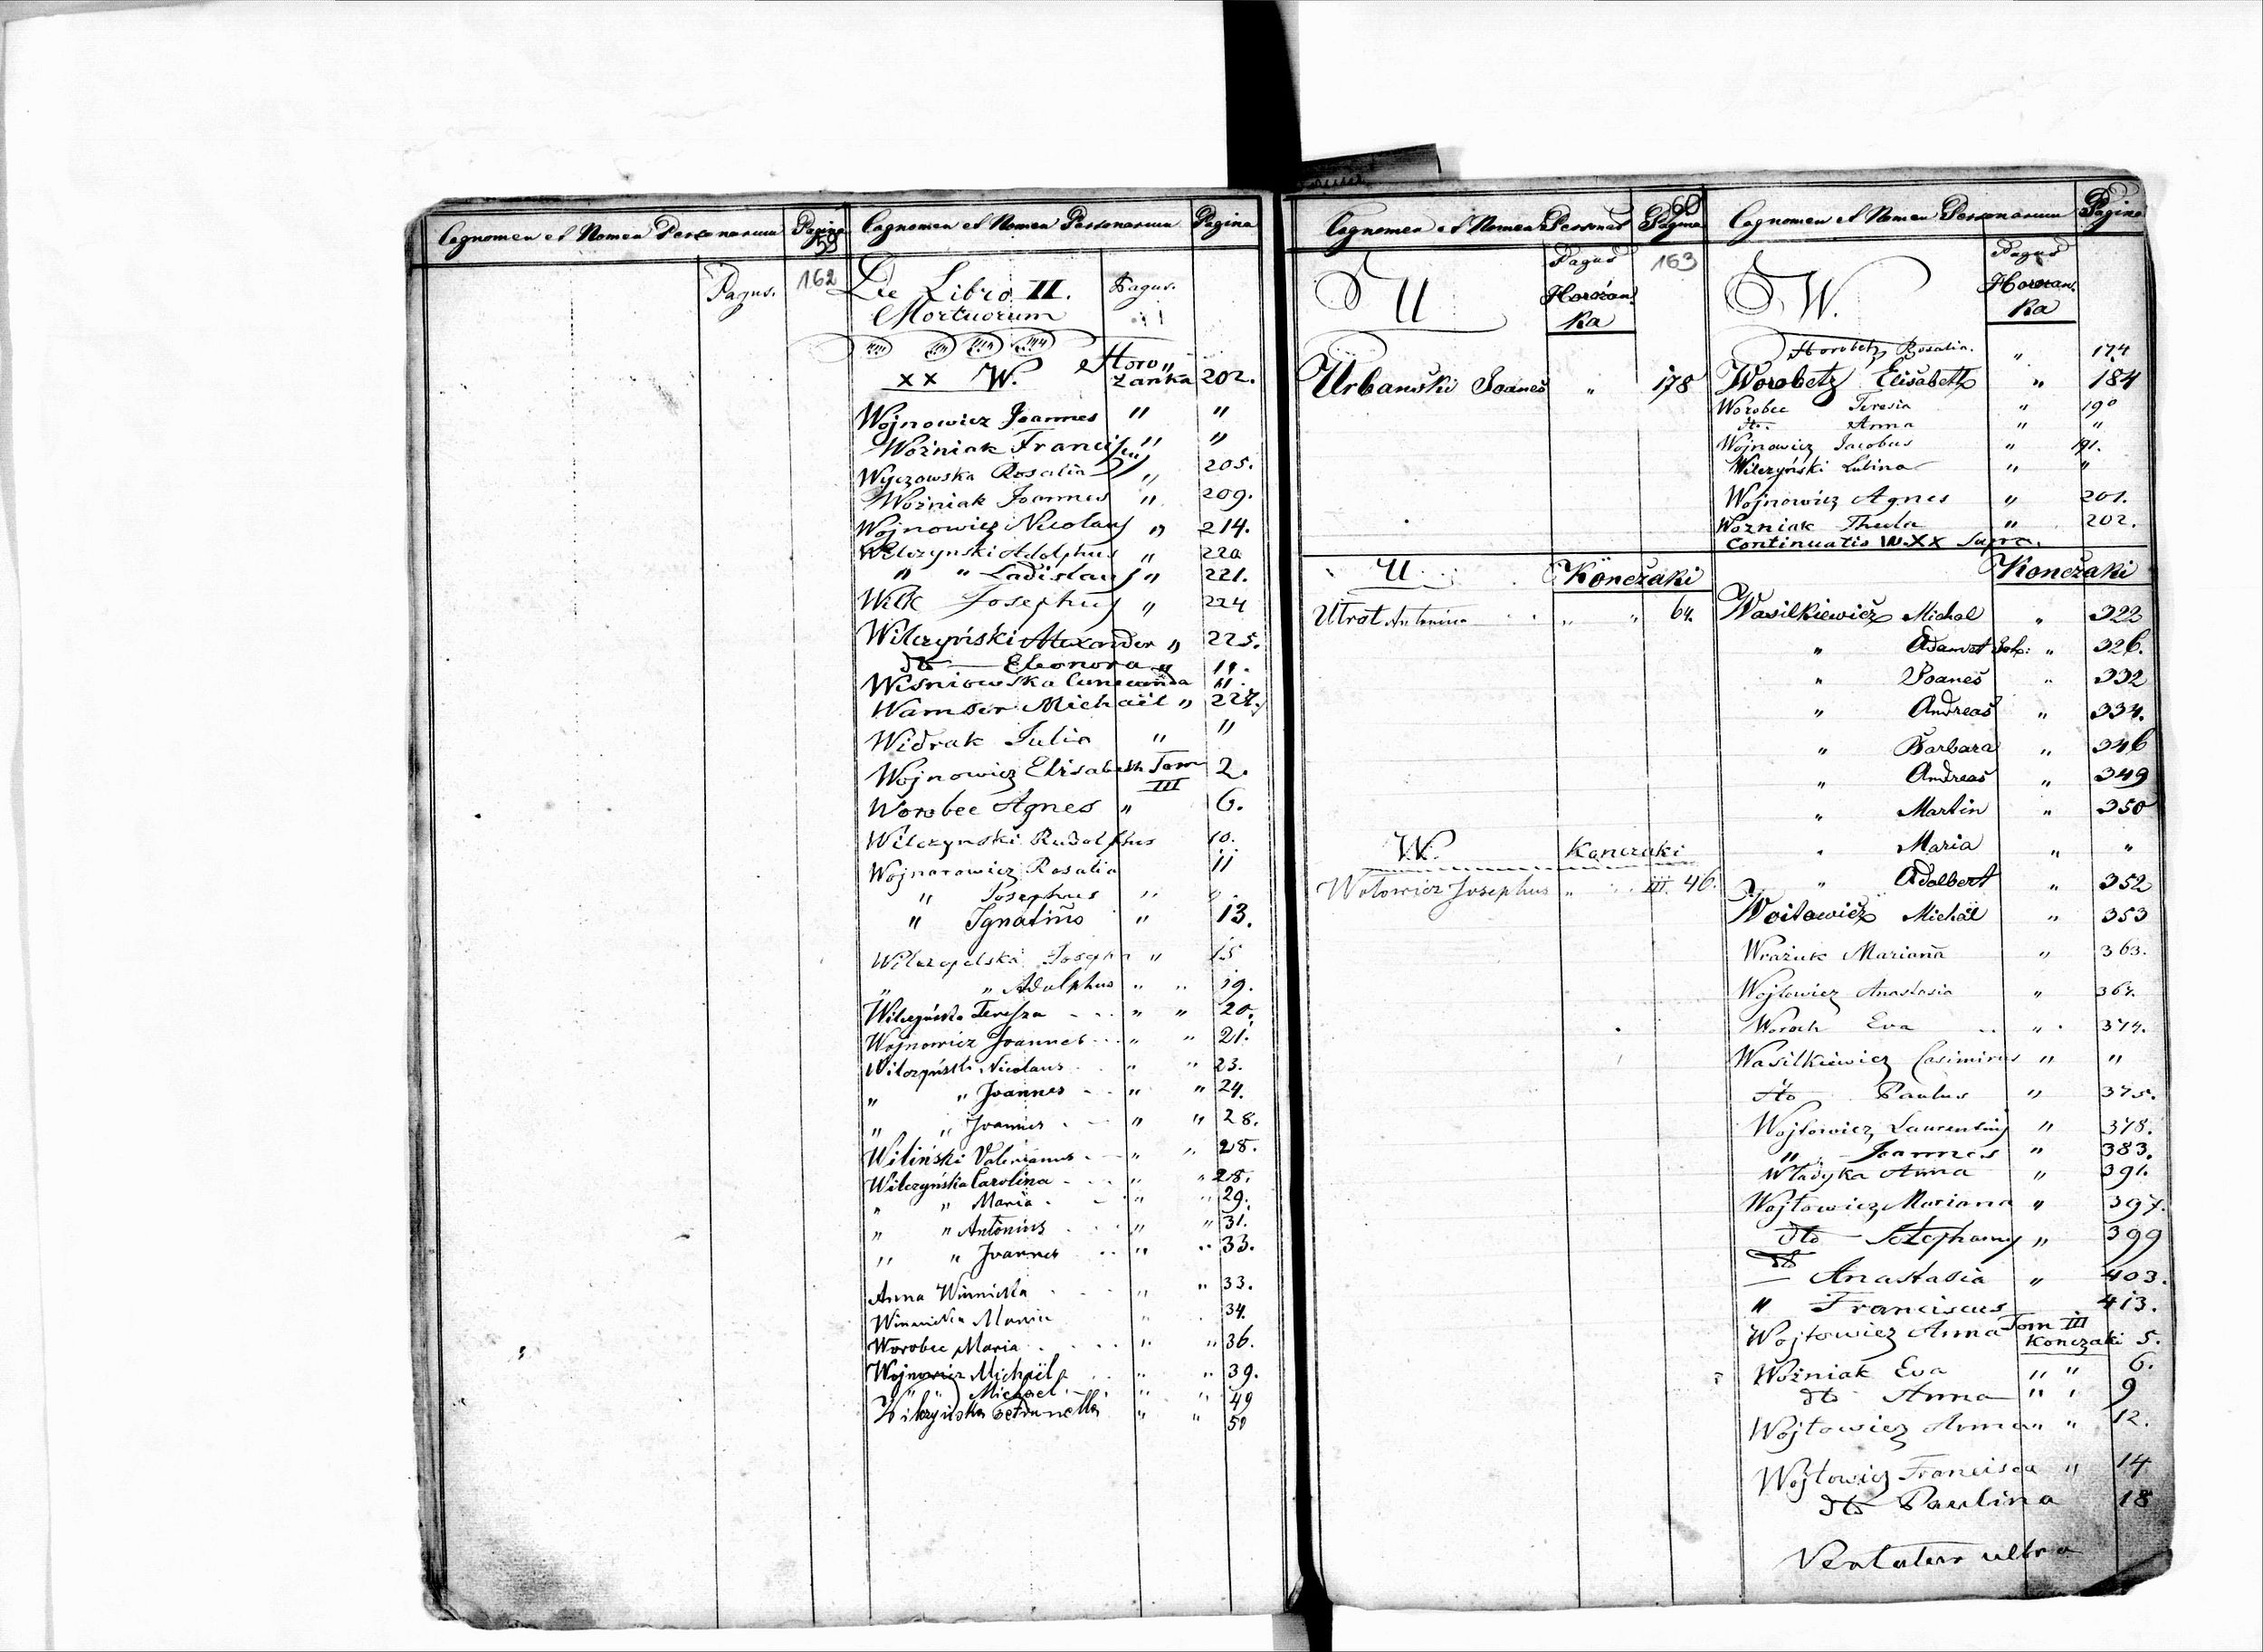 Cognomen et Nomen Personarum Pagina
59
Pagus. 162
Cognomen et Nomen Personarum Pagina
De Libro II. Pagus.
Mortuorum
Horo„
xx W. zanka 202.
Wojnowicz Joannes " "
Woźniak Francis " "
Wyczowska Rosalia " 205.
Woźniak Joannes " 209.
Wojnowicz Nicolaus " 214.
Wilczynski Adolphus " 220
" " Ladislaus " 221.
Wilk Josephus " 224
Wilczyński Alexander " 225.
dto — Eleonora " ".
Wiśniowska Cunecunda ".
Wamser Michaël " 227.
Widrak Julia " "
Wojnowicz Elisabeth Tom 2.
III
Worobec Agnes " 6.
Wilczynski Rudolphus 10.
Wojnarowicz Rosalia 11
" Josephus " ".
" Ignatius " 13.
Joseph " 15
" " Adolphus " " 19.
Wilczyńska Teressa " " 20.
Wojnowicz Joannes " " 21.
Wilczyński Nicolaus " " 23.
" " Joannes " " 24.
" " Joannes " " 28.
Wiliński Valerianus " " 28.
Wilczyńska Carolina " " 28.
" " Maria " " 29.
" " Antonius " " 31.
" " Joannes " " 33.
Anna Winnicka " " 33.
Winnicka Maria " 34.
Worobec Maria " " 36.
Wojnowicz Michaël " " 39.
" " Michael " " 49
Wilczyńska Petrunella " " 50
Cognomen et Nomen Personar Pagina
60
U Pagus 163
Horożan
ka
Urbański Joanes " 178
U Kończaki
Utrat Antonina " " 64.
W. Konczaki
Wotowicz Josephus " III. 46.
Cognomen et Nomen Personarum Pagina
W. Pagus
Horozan.
ka
Horobetz Rosalia. " 174
Worobetz Elisabeth " 184
Worobec Teresia " 190
dto. Anna " "
Wojnowicz Jacobus " 191.
Wilczyński Lubina " "
Wojnowicz Agnes " 201.
Wozniak Thecla " 202.
Continuatio W.XX Supra.
Kończaki
Wasilkiewicz Michal " 322
" Adam " 326.
" Joanes " 332
" Andreas " 334.
" Barbara " 346
" Andreas " 349
" Martin " 350
" Maria " "
" Adalbert " 352
Woitowicz Michäl " 353
Wrażuk Mariana " 363.
Wojtowicz Anastasia " 367.
Woroch Eva " 374.
Wasilkiewicz Casimirus " "
dto Paulus " 375.
Wojtowicz Laurentius " 378.
" Joannes " 383.
Władyka Anna " 391.
Wojtowicz Mariana " 397.
dto — Stephanus " 399
dto
— Anastasia " 403.
" Franciscus 413.
Wojtowicz Anna Tom III
Konczaki 5.
Woźniak Eva " " 6.
dto Anna " " 9
Wojtowicz Anna " " 12.
Wojtowicz Francisca " 14
dto Paulina 18
ultra